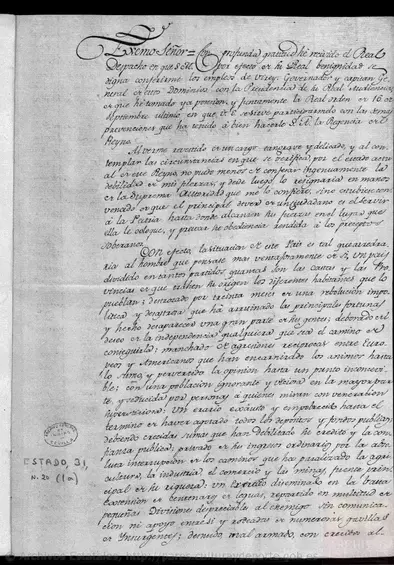 Exmo Señor = Con profunda gratitud he recivido el Real
Despacho en que S.M. por efecto de su Real benignidad se
digna conferirme los empleos de Virey, Governador y Capitan Ge-
neral de estos Dominios con la Presidencia de su Real Audiencia,
de que he tomado ya posesion, y juntamente la Real orden de 16 de
Septiembre ultimo en que V.E. se sirve participarmelo con las
prevenciones que ha tenido á bien hacerle S.A. la Regencia del
Reyno.
Al verme revestido de un cargo tan grave y delicado, y al con-
templar las circunstancias en que se verifica por el estado actual
de este Reyno, no puedo menos de confesar ingenuamente la
debilidad de mis fuerzas; y desde luego lo resignaria en manos
de la Suprema Autoridad que me lo confiere, sino estubiese con-
vencido de que el principal dever de un ciudadano es el servir
á la Patria hasta donde alcancen sus fuerzas en el lugar que
ella le coloque, y prestar su obediencia rendida á los preceptos
soberanos.
Con efecto, la situacion de este Pais es tal que arredra-
ria al hombre que pensase mas ventajosamente de si. Un pais
dividido en tantos partidos quantas son las castas y las Pro-
vincias de que trahen su origen los diferentes habitantes que lo
pueblan; destrozado por treinta meses de una revolucion impo-
litica y desastrosa que ha arruinado las principales fortunas
y hecho desaparecer una gran parte de sus gentes; devorado del
deseo de la independencia qualquiera que sea el camino de
conseguirla; manchado de agresiones reciprocas entre Euro-
peos y Americanos que han encarnizado los animos hasta
lo sumo y pervertido la opinion hasta un punto inconcevi-
ble; con una poblacion ignorante y viciosa en la mayor par-
te, y seducida por personas á quienes miran con veneracion
supersticiosa. Un erario exausto y empobrecido hasta el
termino de haver apurado todos los depositos y fondos publicos,
debiendo crecidas sumas que han debilitado su credito y la con-
fianza publica; privado de su ingreso ordinario por la abso-
luta interrupcion de los caminos que ha paralizado la agri-
cultura, la industria, el comercio y las minas, fuente prin-
cipal de su riqueza. Un Exercito diseminado en la basta
extension de centenares de leguas, repartido en multitud de
pequeñas Divisiones despreciables al enemigo sin comunica-
cion ni apoyo entre si y rodeadas de numerosas gavillas
de Insurgentes; desnudo, mal armado, con crecidos al-
ESTADO, 31,
N. 20 (1a)